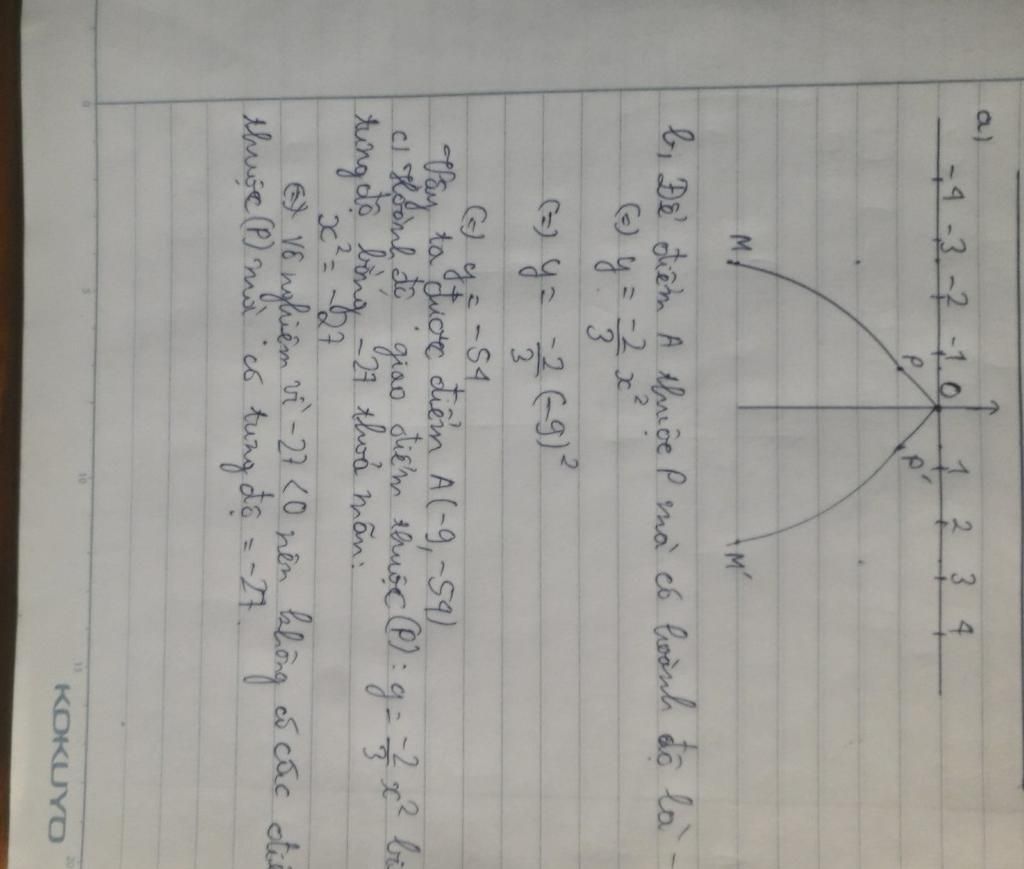 a)
-4 -3 -2 -1 0 1 2 3 4
P P'
M M'
b, Để điểm A thuộc P mà có hoành độ là -
(=) y = -2/3 x²
(=) y = -2/3 (-9)²
(=) y = -54
Vậy ta được điểm A(-9, -54)
c, Hoành độ giao điểm thuộc (P): y = -2/3 x²
tung độ bằng -27 thoả mãn:
x² = -27
(=) Vô nghiệm vì -27 < 0 nên không có các
thuộc (P) mà có tung độ = -27.
0 5 10 15 20
KOKUYO